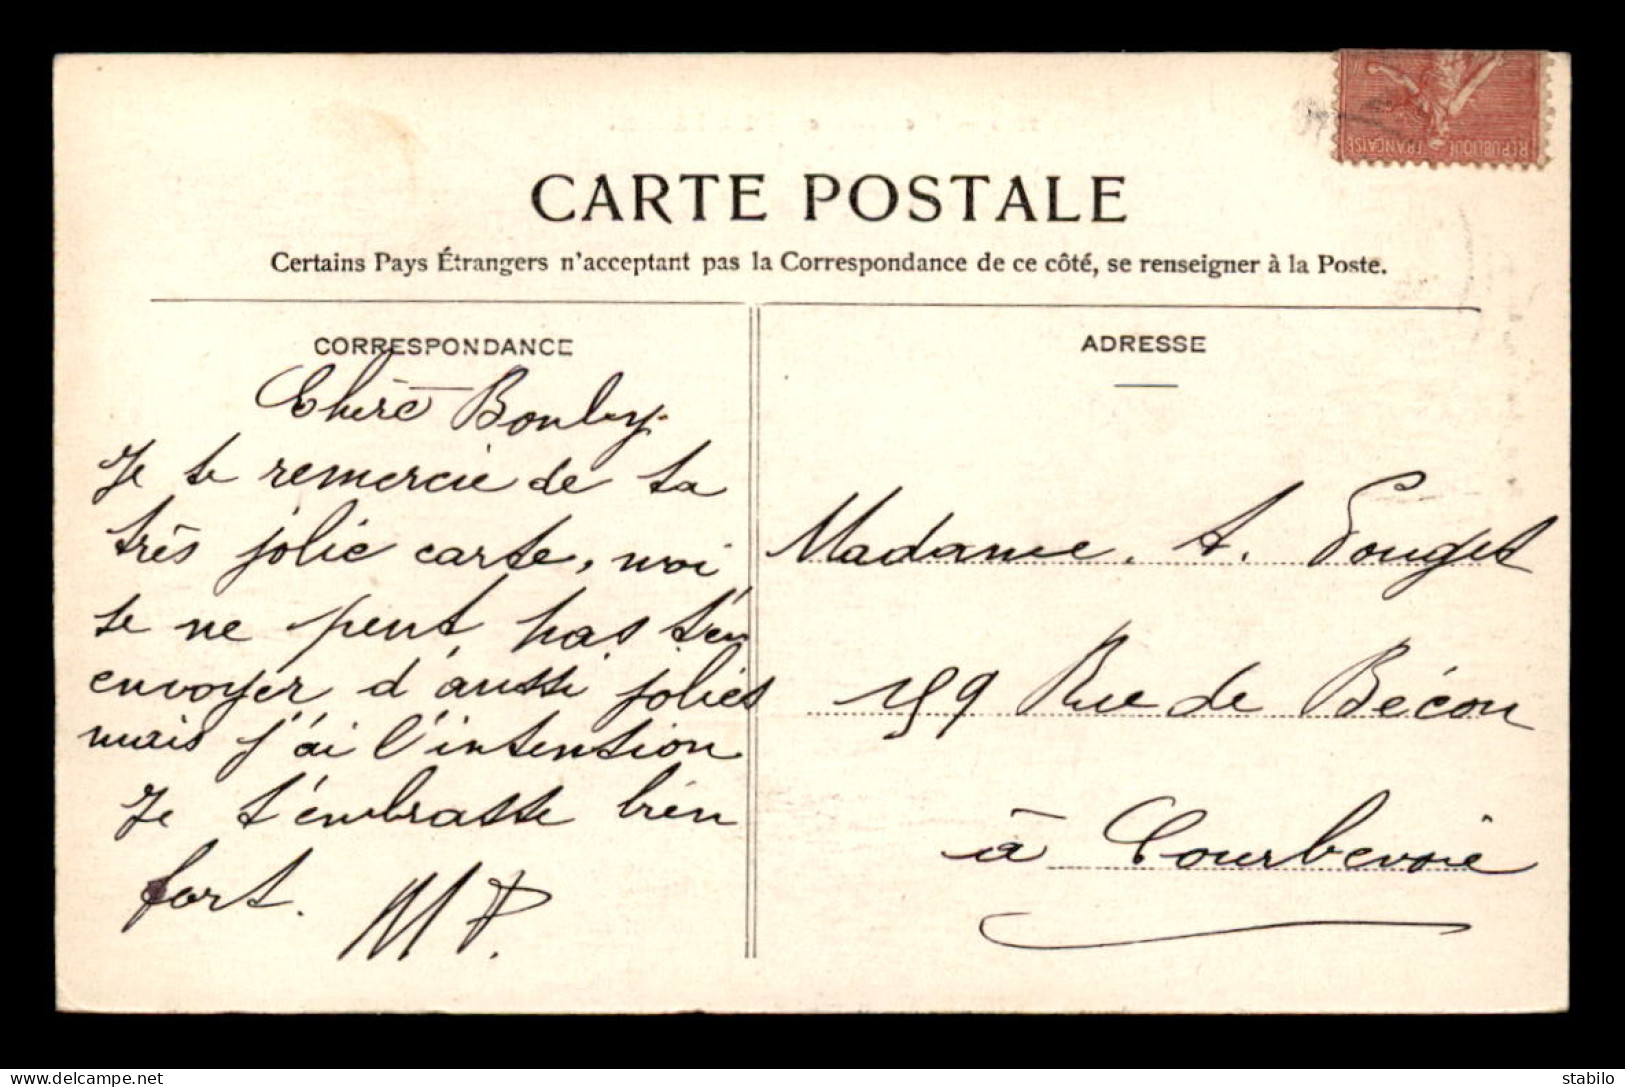 CARTE POSTALE
Certains Pays Étrangers n'acceptant pas la Correspondance de ce côté, se renseigner à la Poste.
CORRESPONDANCE
Chère Bouley.
Je te remercie de ta
très jolie carte, moi
je ne peut pas t'en
envoyer d'aussi jolies
mais j'ai l'intention
Je t'embrasse bien
fort. MP.
ADRESSE
Madame. A. Pouget
159 Rue de Bécon
à Courbevoie
REPUBLIQUE FRANÇAISE
stabilo